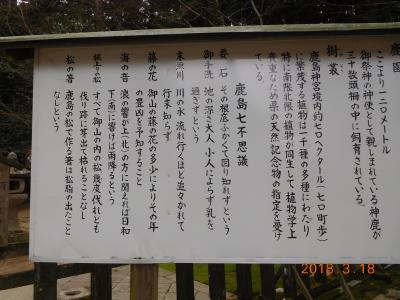 鹿園
ここより一二〇メートル
御祭神の神使として親しまれている神鹿が
三十数頭柵の中に飼育されている。
樹叢
鹿島神宮境内約七〇ヘクタール(七〇町歩)
に繁茂する植物は一千種の多種にわたり
特に南限北限の植物が同生して、植物学上
貴重なため県の天然記念物の指定を受け
ている。
鹿島七不思議
要石 その根底ふかくて図り知れずという
御手洗 池の深さ大人小人によらず乳を
過ぎずという
末無川 川の水流れ行くほど近々かれて
行末知らず
藤の花 御山の藤の花の多少によりその年
の豊凶を予知すること
海の音 浪の響が上(北)の方に聞えれば日和
下(南)に響けば雨降るという
根上り松 すべて御山の内の松幾度伐れども
伐り跡に芽出で枯れることなし
松の箸 鹿島の松で作る箸は松脂の出たこと
なしという
2018.3.18